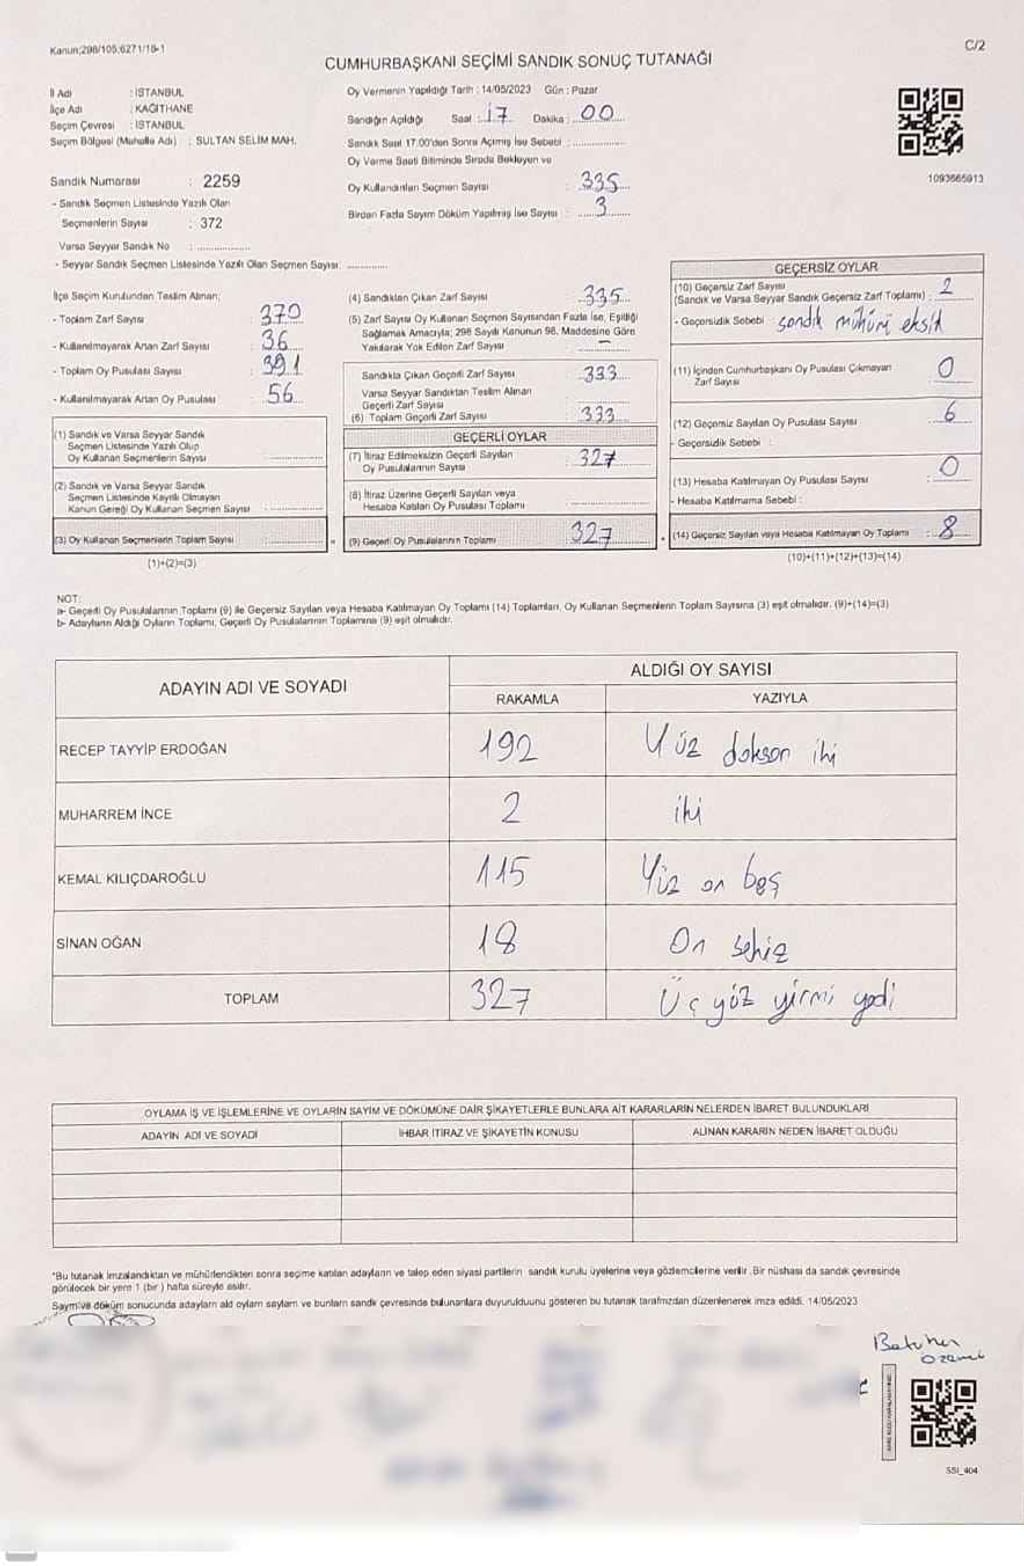 Kanun;298/105;6271/18-1
C/2
CUMHURBAŞKANI SEÇİMİ SANDIK SONUÇ TUTANAĞI
İl Adı : İSTANBUL
İlçe Adı : KAĞITHANE
Seçim Çevresi : İSTANBUL
Seçim Bölgesi (Mahalle Adı) : SULTAN SELİM MAH.
Sandık Numarası : 2259
- Sandık Seçmen Listesinde Yazılı Olan
Seçmenlerin Sayısı : 372
Varsa Seyyar Sandık No : ...............
- Seyyar Sandık Seçmen Listesinde Yazılı Olan Seçmen Sayısı: ............
Oy Vermenin Yapıldığı Tarih : 14/05/2023 Gün : Pazar
Sandığın Açıldığı Saat : 17 Dakika : 00
Sandık Saat 17.00'den Sonra Açılmış İse Sebebi : ...............
Oy Verme Saati Bitiminde Sırada Bekleyen ve
Oy Kullandırılan Seçmen Sayısı : 335
Birden Fazla Sayım Döküm Yapılmış İse Sayısı : 3
1093665913
İlçe Seçim Kurulundan Teslim Alınan;
- Toplam Zarf Sayısı : 370
- Kullanılmayarak Artan Zarf Sayısı : 36
- Toplam Oy Pusulası Sayısı : 391
- Kullanılmayarak Artan Oy Pusulası : 56
(1) Sandık ve Varsa Seyyar Sandık
Seçmen Listesinde Yazılı Olup
Oy Kullanan Seçmenlerin Sayısı : ...............
(2) Sandık ve Varsa Seyyar Sandık
Seçmen Listesinde Kayıtlı Olmayan
Kanun Gereği Oy Kullanan Seçmen Sayısı : ...............
(3) Oy Kullanan Seçmenlerin Toplam Sayısı : ...............
(1)+(2)=(3)
(4) Sandıktan Çıkan Zarf Sayısı : 335
(5) Zarf Sayısı Oy Kullanan Seçmen Sayısından Fazla İse, Eşitliği
Sağlamak Amacıyla; 298 Sayılı Kanunun 98. Maddesine Göre
Yakılarak Yok Edilen Zarf Sayısı : –
Sandıkta Çıkan Geçerli Zarf Sayısı : 333
Varsa Seyyar Sandıktan Teslim Alınan
Geçerli Zarf Sayısı
(6) Toplam Geçerli Zarf Sayısı : 333
GEÇERLİ OYLAR
(7) İtiraz Edilmeksizin Geçerli Sayılan
Oy Pusulalarının Sayısı : 327
(8) İtiraz Üzerine Geçerli Sayılan veya
Hesaba Katılan Oy Pusulası Toplamı : ...............
(9) Geçerli Oy Pusulalarının Toplamı : 327
GEÇERSİZ OYLAR
(10) Geçersiz Zarf Sayısı
(Sandık ve Varsa Seyyar Sandık Geçersiz Zarf Toplamı) : 2
- Geçersizlik Sebebi : sandık mühürü eksik
(11) İçinden Cumhurbaşkanı Oy Pusulası Çıkmayan
Zarf Sayısı : 0
(12) Geçersiz Sayılan Oy Pusulası Sayısı : 6
- Geçersizlik Sebebi :
(13) Hesaba Katılmayan Oy Pusulası Sayısı : 0
- Hesaba Katılmama Sebebi :
(14) Geçersiz Sayılan veya Hesaba Katılmayan Oy Toplamı : 8
(10)+(11)+(12)+(13)=(14)
NOT:
a- Geçerli Oy Pusulalarının Toplamı (9) ile Geçersiz Sayılan veya Hesaba Katılmayan Oy Toplamı (14) Toplamları, Oy Kullanan Seçmenlerin Toplam Sayısına (3) eşit olmalıdır. (9)+(14)=(3)
b- Adayların Aldığı Oyların Toplamı, Geçerli Oy Pusulalarının Toplamına (9) eşit olmalıdır.
ADAYIN ADI VE SOYADI ALDIĞI OY SAYISI
RAKAMLA YAZIYLA
RECEP TAYYİP ERDOĞAN 192 Yüz doksan iki
MUHARREM İNCE 2 iki
KEMAL KILIÇDAROĞLU 115 Yüz on beş
SİNAN OĞAN 18 On sekiz
TOPLAM 327 Üç yüz yirmi yedi
OYLAMA İŞ VE İŞLEMLERİNE VE OYLARIN SAYIM VE DÖKÜMÜNE DAİR ŞİKAYETLERLE BUNLARA AİT KARARLARIN NELERDEN İBARET BULUNDUKLARI
ADAYIN ADI VE SOYADI İHBAR İTİRAZ VE ŞİKAYETİN KONUSU ALINAN KARARIN NEDEN İBARET OLDUĞU
*Bu tutanak imzalandıktan ve mühürlendikten sonra seçime katılan adayların ve talep eden siyasi partilerin sandık kurulu üyelerine veya gözlemcilerine verilir. Bir nüshası da sandık çevresinde
görülecek bir yere 1 (bir) hafta süreyle asılır.
Sayım ve döküm sonucunda adayların ald oyların sayların ve bunların sandık çevresinde bulunanlara duyurulduunu gösteren bu tutanak tarafımızdan düzenlenerek imza edildi. 14/05/2023
SSI_404